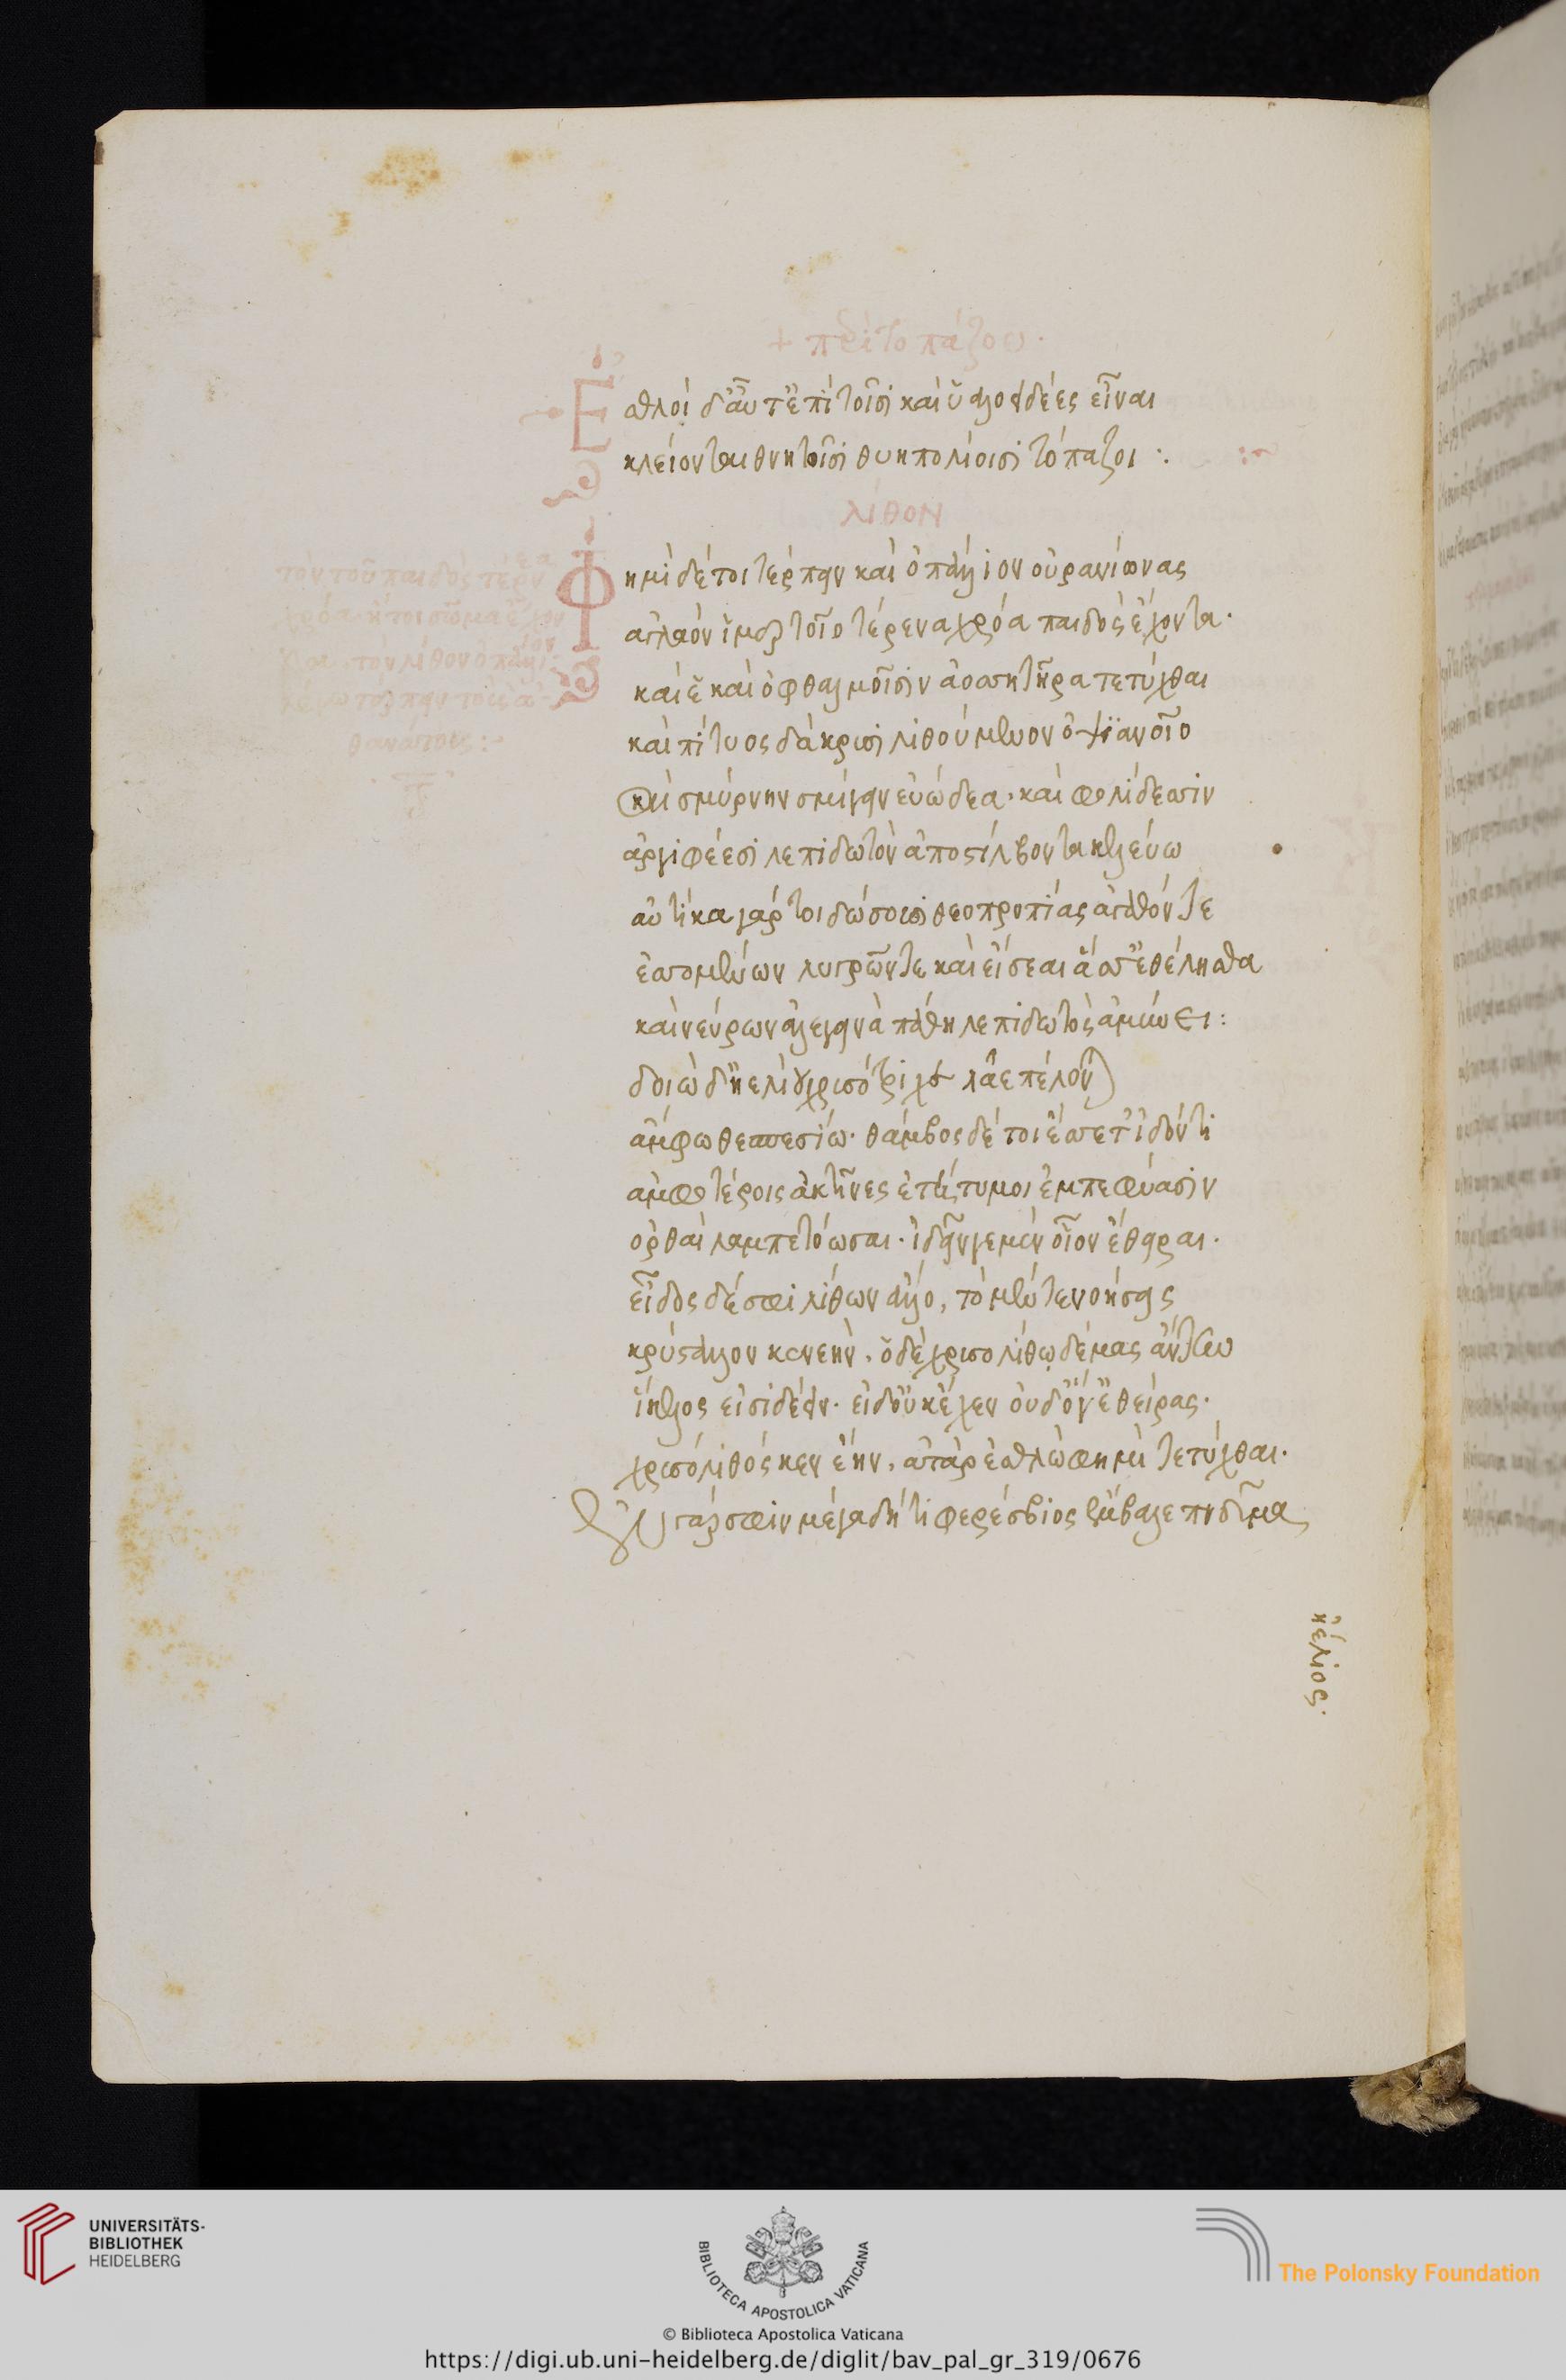 + περὶ τοπάζου·
Ἐσθλοὶ δ' αὖτ' ἐπὶ τοῖσι καὶ ὑαλοειδέες εἶναι
κλείονται θνητοῖσι θυηπολίοισι τόπαζοι :.
λίθον
Φημὶ δέ τοι τέρπειν καὶ ὀπάλλιον οὐρανίωνας
ἀγλαὸν ἱμερτοῖο τέρενα χρόα παιδὸς ἔχοντα·
καὶ ἓ καὶ ὀφθαλμοῖσιν ἀρωγητῆρα τετύχθαι
καὶ πίτυος δάκρυσι λιθούμενον ὀψιανοῖο
καὶ σμύρνην σμίγειν εὐώδεα· καὶ φολίδεσσιν
ἀργιφέεσι λεπιδωτὸν ἀποστίλβοντα κελεύω
αὐτίκα γάρ τοι δώσουσι θεοπροπίας ἀγαθόν τε
ἐσσομένων λυγρῶν τε καὶ εἴσεαι ἅσσ' ἐθέλησθα
καὶ νεύρων ἀλεγεινὰ πάθη λεπιδωτὸς ἀμύνει :
δοιὼ δ' ἠελίου χρυσότριχε λᾶε πέλονται
ἄμφω θεσπεσίω· θάμβος δέ τοι ἔσσετ' ἰδόντι
ἀμφοτέροις ἀκτῖνες ἐτήτυμοι ἐμπεφύασιν
ὀρθαὶ λαμπετόωσαι· ἰδεῖν γε μὲν οἷον ἔθειραι·
εἶδος δέ σφι λίθων ἄλλο, τὸ μέν τε νοήσεις
κρύσταλλον κενεήν, ὁ δὲ χρυσολίθῳ δέμας ἄντην
ἴκελος εἰσιδέειν· εἰ δ' οὐκ ἔχεν οὐδ' ὅγ' ἐθείρας·
χρυσόλιθός κεν ἔην, ἀτὰρ ἐσθλὼ φημὶ τετύχθαι·
αὐτάρ σφιν μέγα δή τι φερέσβιος ἔμβαλε πνεῦμα
ἠέλιος·
τὸν τοῦ παιδὸς τέρενα
χρόα ἤτοι σῶμα ἔχοντα
τὸν λίθον ὀπάλλιον
θανάτοις :~
UNIVERSITÄTS-
BIBLIOTHEK
HEIDELBERG
BIBLIOTECA APOSTOLICA VATICANA
The Polonsky Foundation
© Biblioteca Apostolica Vaticana
https://digi.ub.uni-heidelberg.de/diglit/bav_pal_gr_319/0676